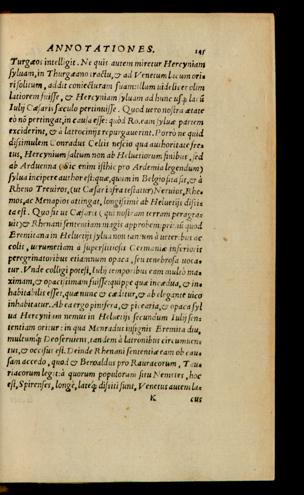 ANNOTATIONES. 145
Turgæos intelligit. Ne quit autem miretur Hercyniam
syluam, in Thurgæano tractu, & ad Venetum lacum oriri
solitum, addit coniecturam suam: illam uidelicet olim
latiorem fuisse, & Hercyniam syluam ad hunc usq; lacū
Iulij Cæsaris sæculo pertinuisse. Quod uero nostra ætate
eò nō pertingat, in causa esse: quòd Ro. eam syluæ partem
exciderint, & à latrocinijs repurgauerint. Porrò ne quid
dissimulem Conradus Celtis nescio qua authoritate fretus,
Hercynium saltum non ab Heluetiorum finibus, sed
ab Arduenna (Sic enim isthic pro Ardemia legendum)
sylua incipere author est: quæ, quum in Belgio sita sit, & à
Rheno Treuiros, (ut Cæsar ipse testatur) Neruios, Rhemos,
ac Menapios attingat, longissimè ab Heluetijs dissita
est. Quo fit ut Cæsaris (qui nostram terram peragrauit)
& Rhenani sententiam magis approbem: primū quod
Eremitana in Heluetijs sylua non tantum à ueteribus accolis,
uerumetiam à superstitiosis Germaniæ inferioris
peregrinatoribus etiamnum opaca, seu tenebrosa uocatur.
Vnde colligi potest, Iulij temporibus eam multò maximam,
& opacissimam fuisse: quippe quæ incædua, & inhabitabilis
esset, quæ nunc & cæditur, & ab elegante uico
inhabitatur. Ab ea ergo pinifera, & piccaria, & opaca sylua
Hercynium nemus in Heluetijs secundum Iulij sententiam
oritur: in qua Menradus insignis Eremita diu,
multumq; Deo seruiens, tandem à latronibus circumuentus,
& occisus est. Deinde Rhenani sententiæ eam ob causam
accedo, quod & Beroaldus pro Rauracorum, Tauriacorum
legit: à quorum populorum situ Nemetes, hoc
est, Spirenses, longè, lateq; dissiti sunt, Venetus autem lacus
K cus